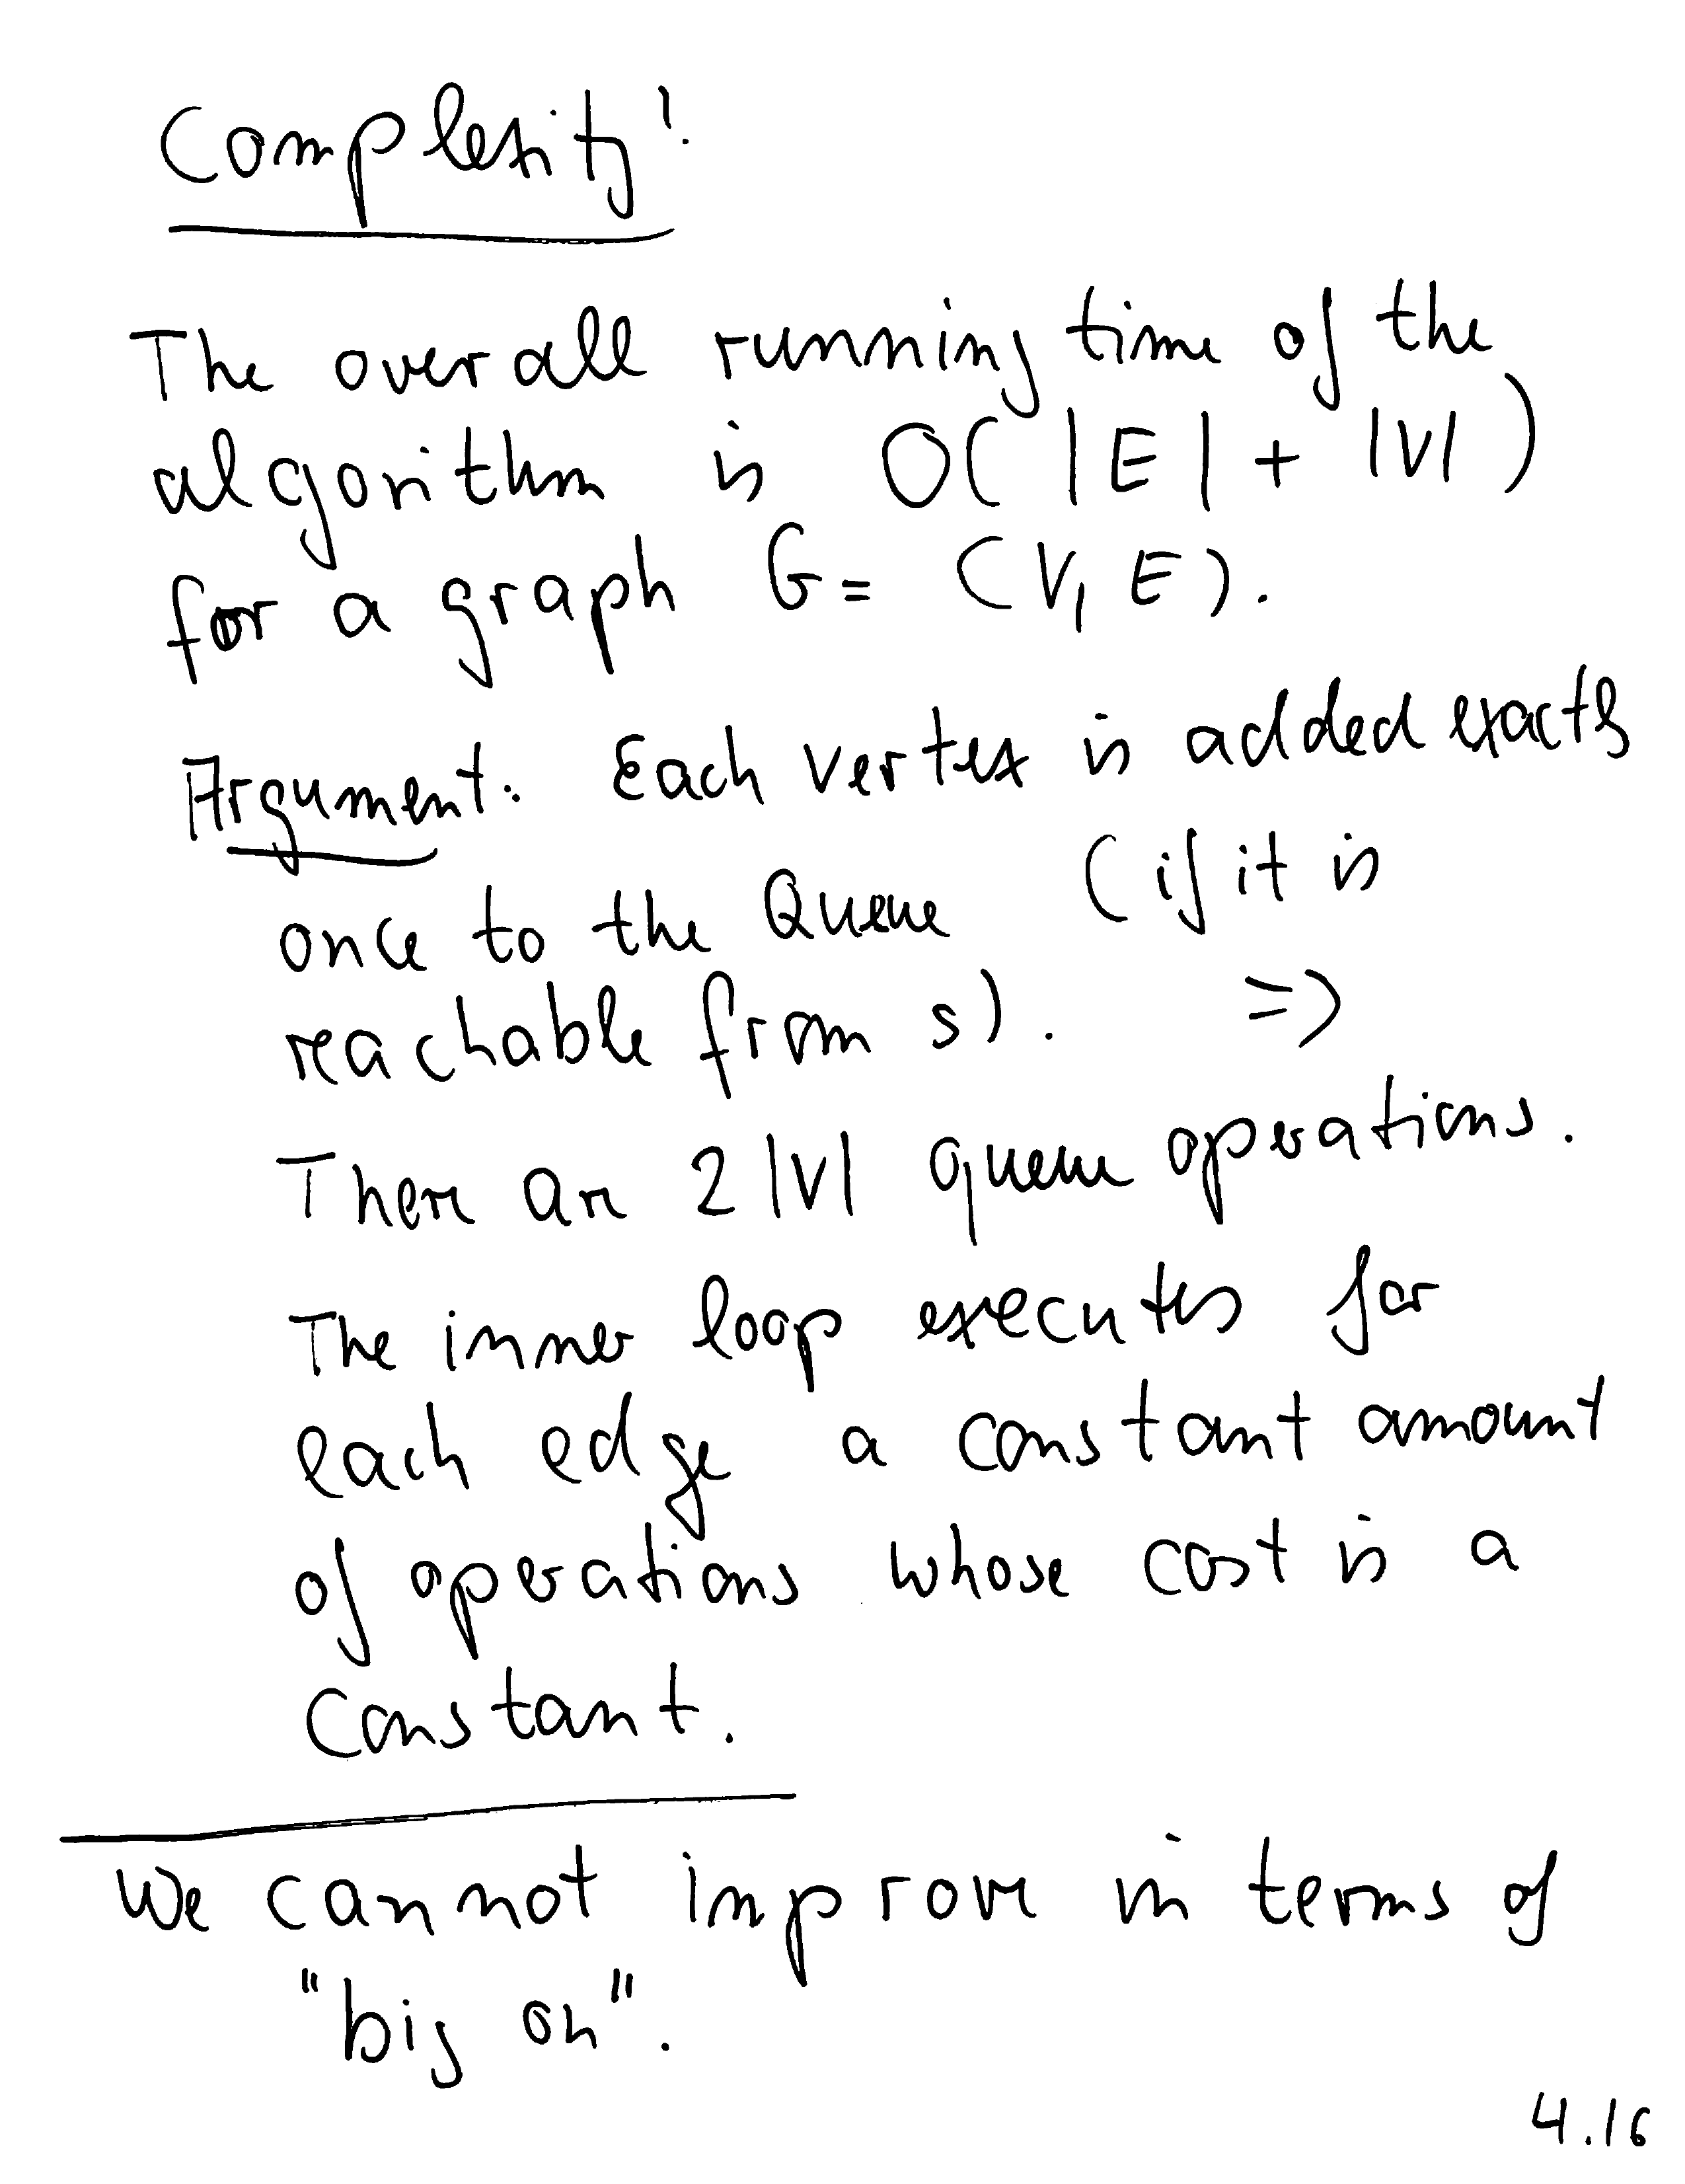 Complexity:
The overall running time of the
algorithm is O( |E| + |V| )
for a graph G = (V, E).
Argument: Each vertex is added exactly
once to the Queue (if it is
reachable from s). =>
There are 2|V| queue operations.
The inner loop executes for
each edge a constant amount
of operations whose cost is a
constant.
We cannot improve in terms of
"big oh".
4.16